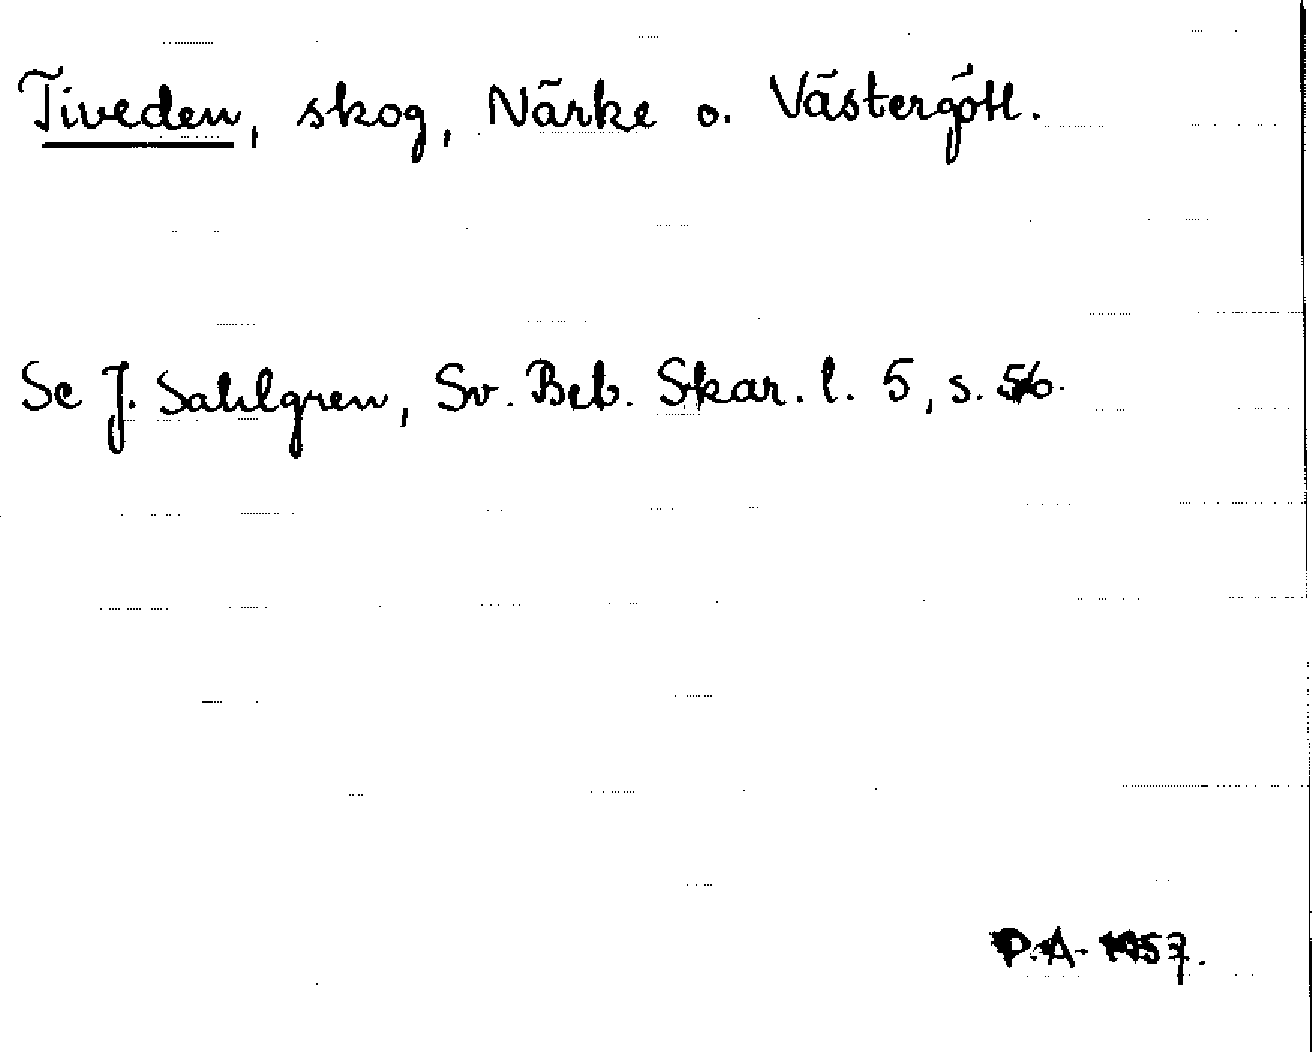 Tiveden, skog, Närke o. Västergötl.
Se J. Sahlgren, Sv. Beb. Skar. l. 5, s. 56.
P.A. 1957.